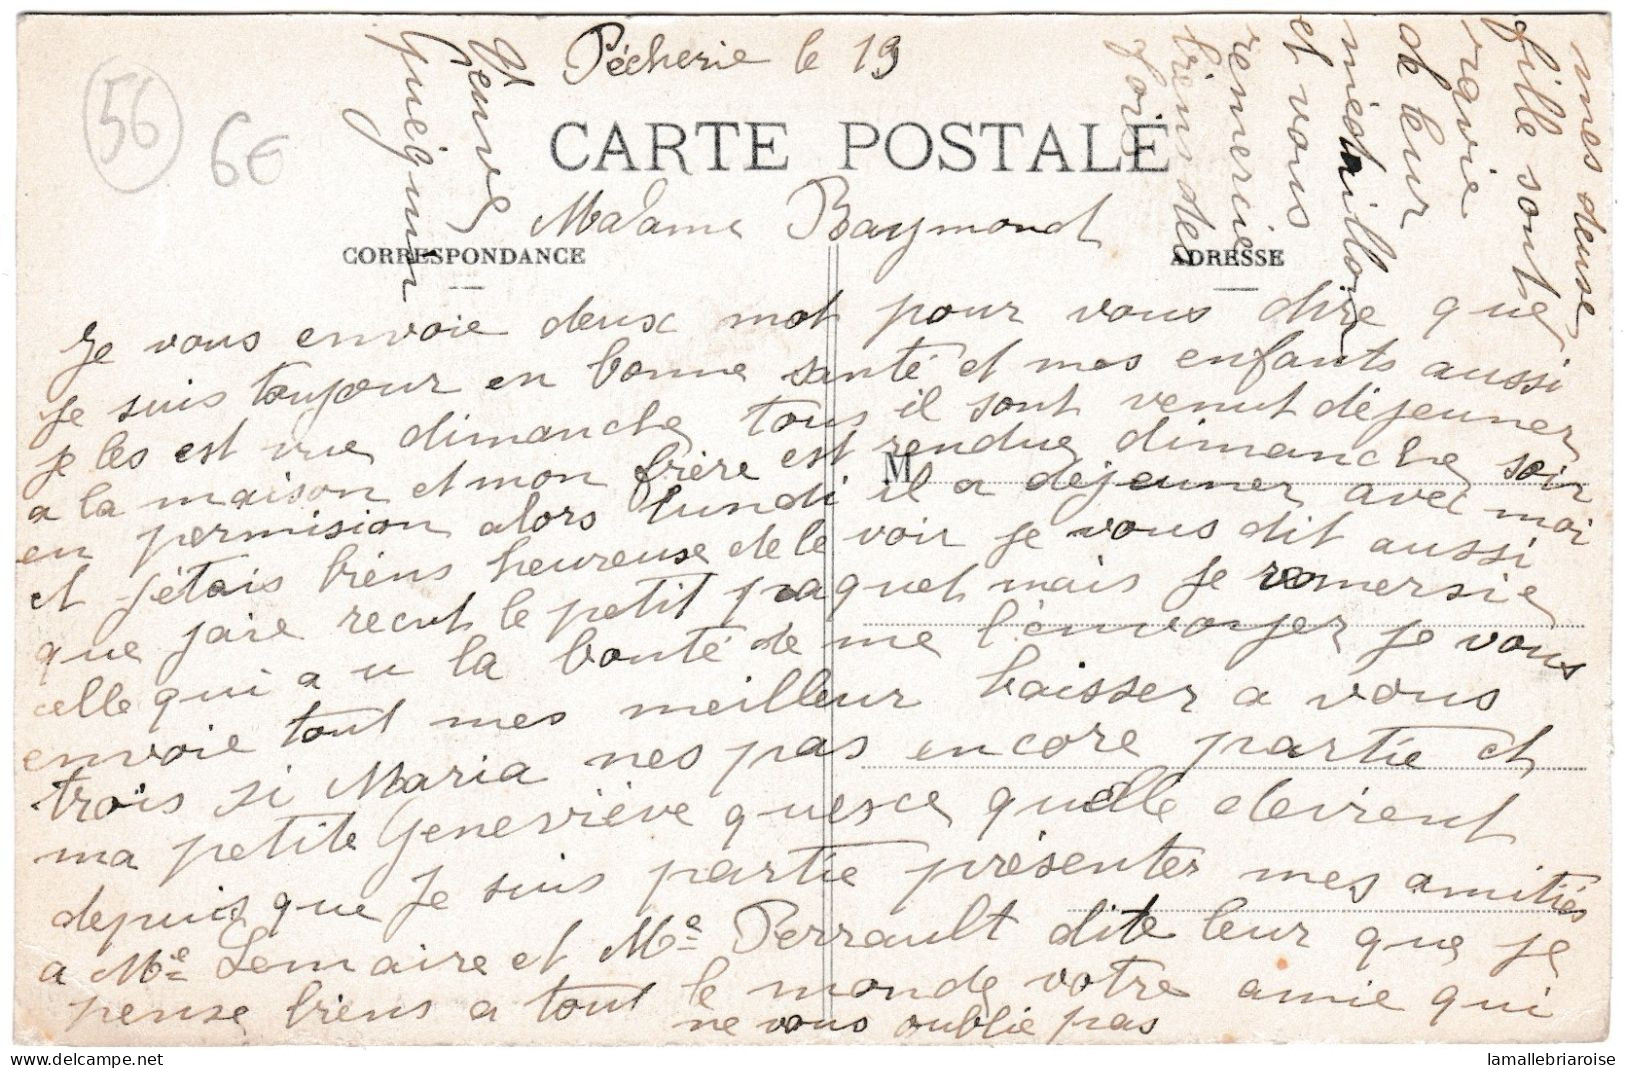 Pécherie le 19
CARTE POSTALE
Madame Raymond
CORRESPONDANCE
ADRESSE
M
Je vous envoie deux mot pour vous dire que
je suis toujour en bonne santé et mes enfants aussi
je les est vue dimanche tous il sont venut déjeuner
a la maison et mon frère est rendue dimanche soir
en permision alors lundi il a déjeuner avec moi
et jétais biens heureuse de le voir je vous dit aussi
que jaie recut le petit paquet mais je remersie
celle qui a u la bonté de me l'envoyer je vous
envoie tout mes meilleur baisser a vous
trois si Maria nes pas encore partie et
ma petite Geneviève quesce quelle devient
depuis que je suis partie présenter mes amitiés
a Me Lemaire et Me Perrault dite leur que je
pense biens a tout le monde votre amie qui
ne vous oublie pas
Veuve
Guéguin
mes deuse
fille sont
de leur
médaillon
et vous
remercie
biens des
fois
56
6€
delcampe.net
lamallebriaroise